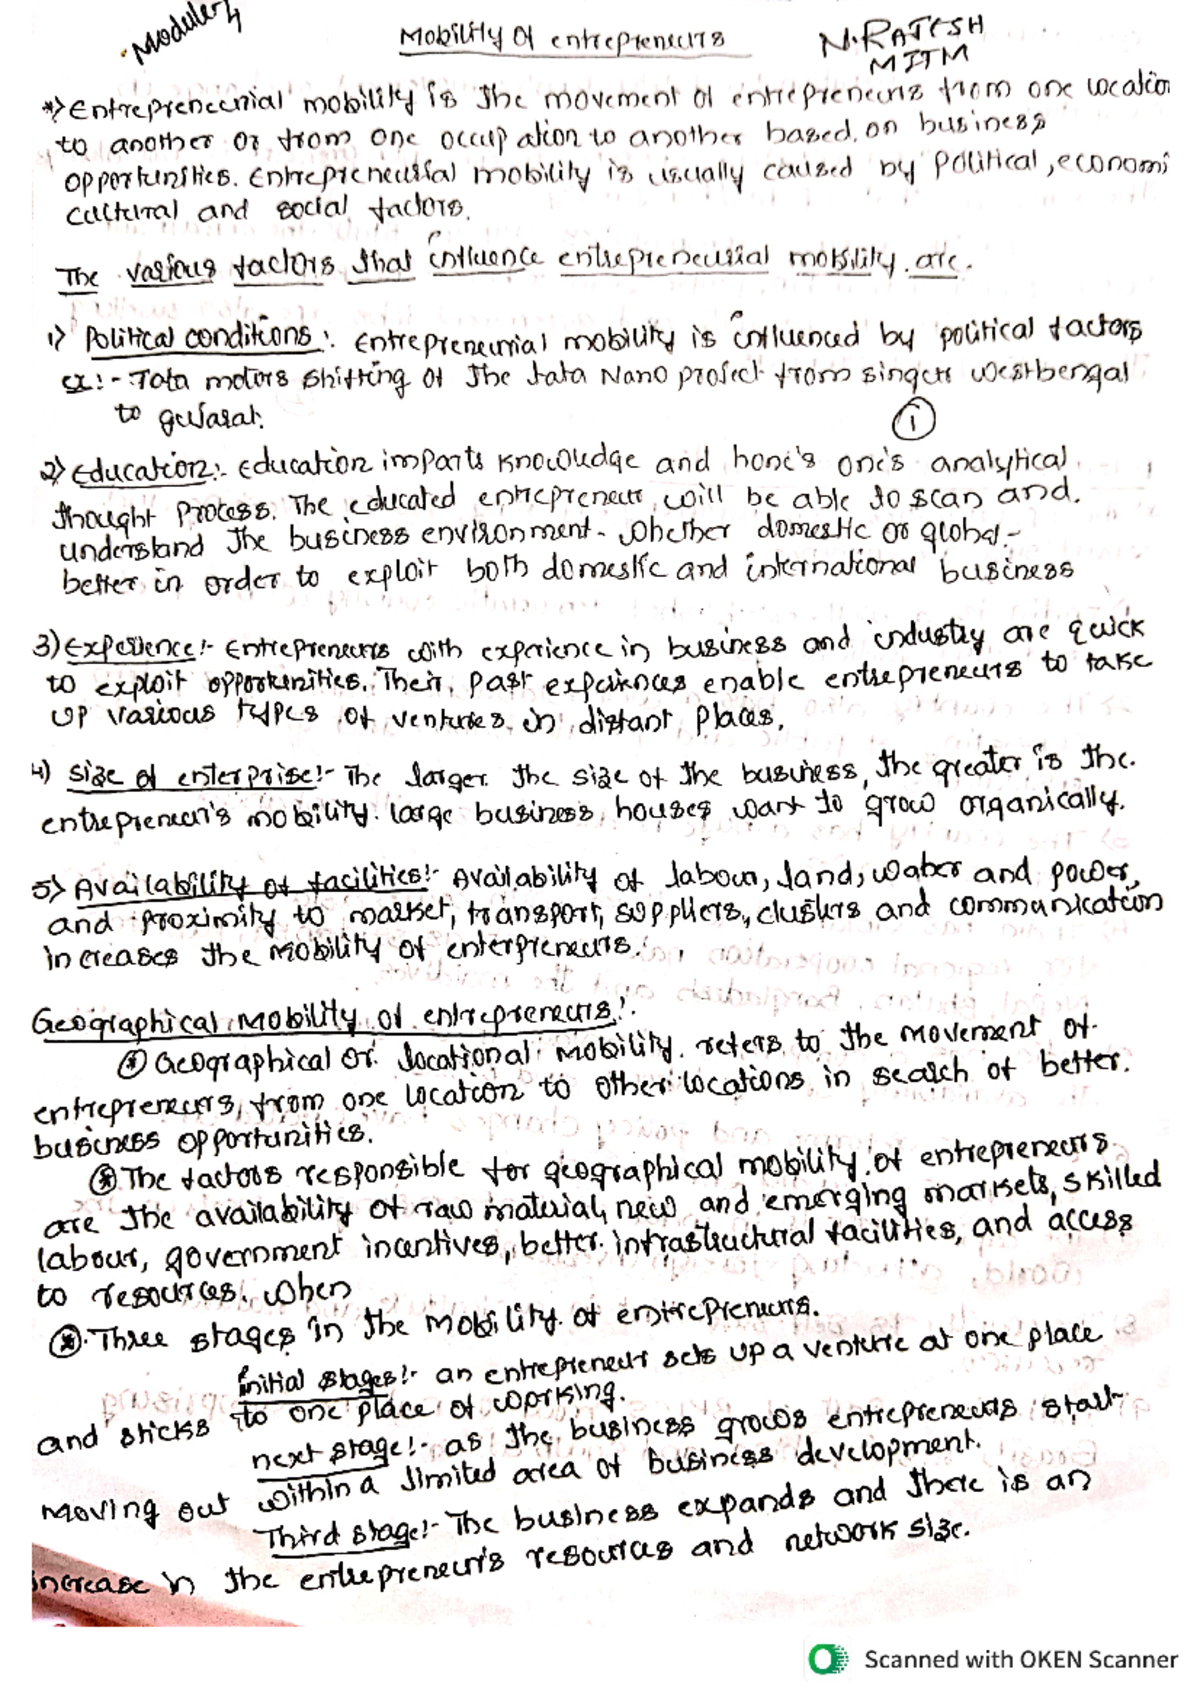 Module 4
Mobility of entrepreneurs
N. RAJESH
MITM
*> Entrepreneurial mobility is the movement of entrepreneurs from one locatio
to another or from one occupation to another based on business
opportunities. Entrepreneurial mobility is usually caused by Political, economi
cultural and social factors.
The various factors that influence entrepreneurial mobility are.
1> Political conditions:- Entrepreneurial mobility is influenced by political factors
ex:- Tata motors shifting of the tata Nano project from singur westbengal
to gujarat.
1
2> Education:- Education imparts knowledge and hone's one's analytical
thought Process. The educated entrepreneur will be able to scan and
understand the business environment - whether domestic or global -
better in order to exploit both domestic and international business
3) Experience:- Entrepreneurs with experience in business and industry are quick
to exploit opportunities. Their past expeiences enable entrepreneurs to take
up various types of ventures in distant places.
4) Size of enterprise:- The larger the size of the business, the greater is the
entrepreneur's mobility. large business houses want to grow organically.
5> Availability of facilities:- Availability of labour, land, water and power,
and proximity to market, transport, suppliers, clusters and communication
increases the mobility of enterpreneurs.
Geographical mobility of entrepreneurs:
* Geographical or locational mobility refers to the movement of
entrepreneurs, from one location to other locations in search of better
business opportunities.
* The factors responsible for geographical mobility of entrepreneurs
are the availability of raw material, new and emerging markets, skilled
labour, government incentives, better infrastructural facilities, and access
to resources. when
* Three stages in the mobility of entrepreneurs.
initial stages:- an entrepreneur sets up a venture at one place
and sticks to one place of working.
next stage:- as the business grows entrepreneurs start
moving out within a limited area of business development.
Third stage:- The business expands and there is an
increase in the entrepreneur's resources and network size.
Scanned with OKEN Scanner